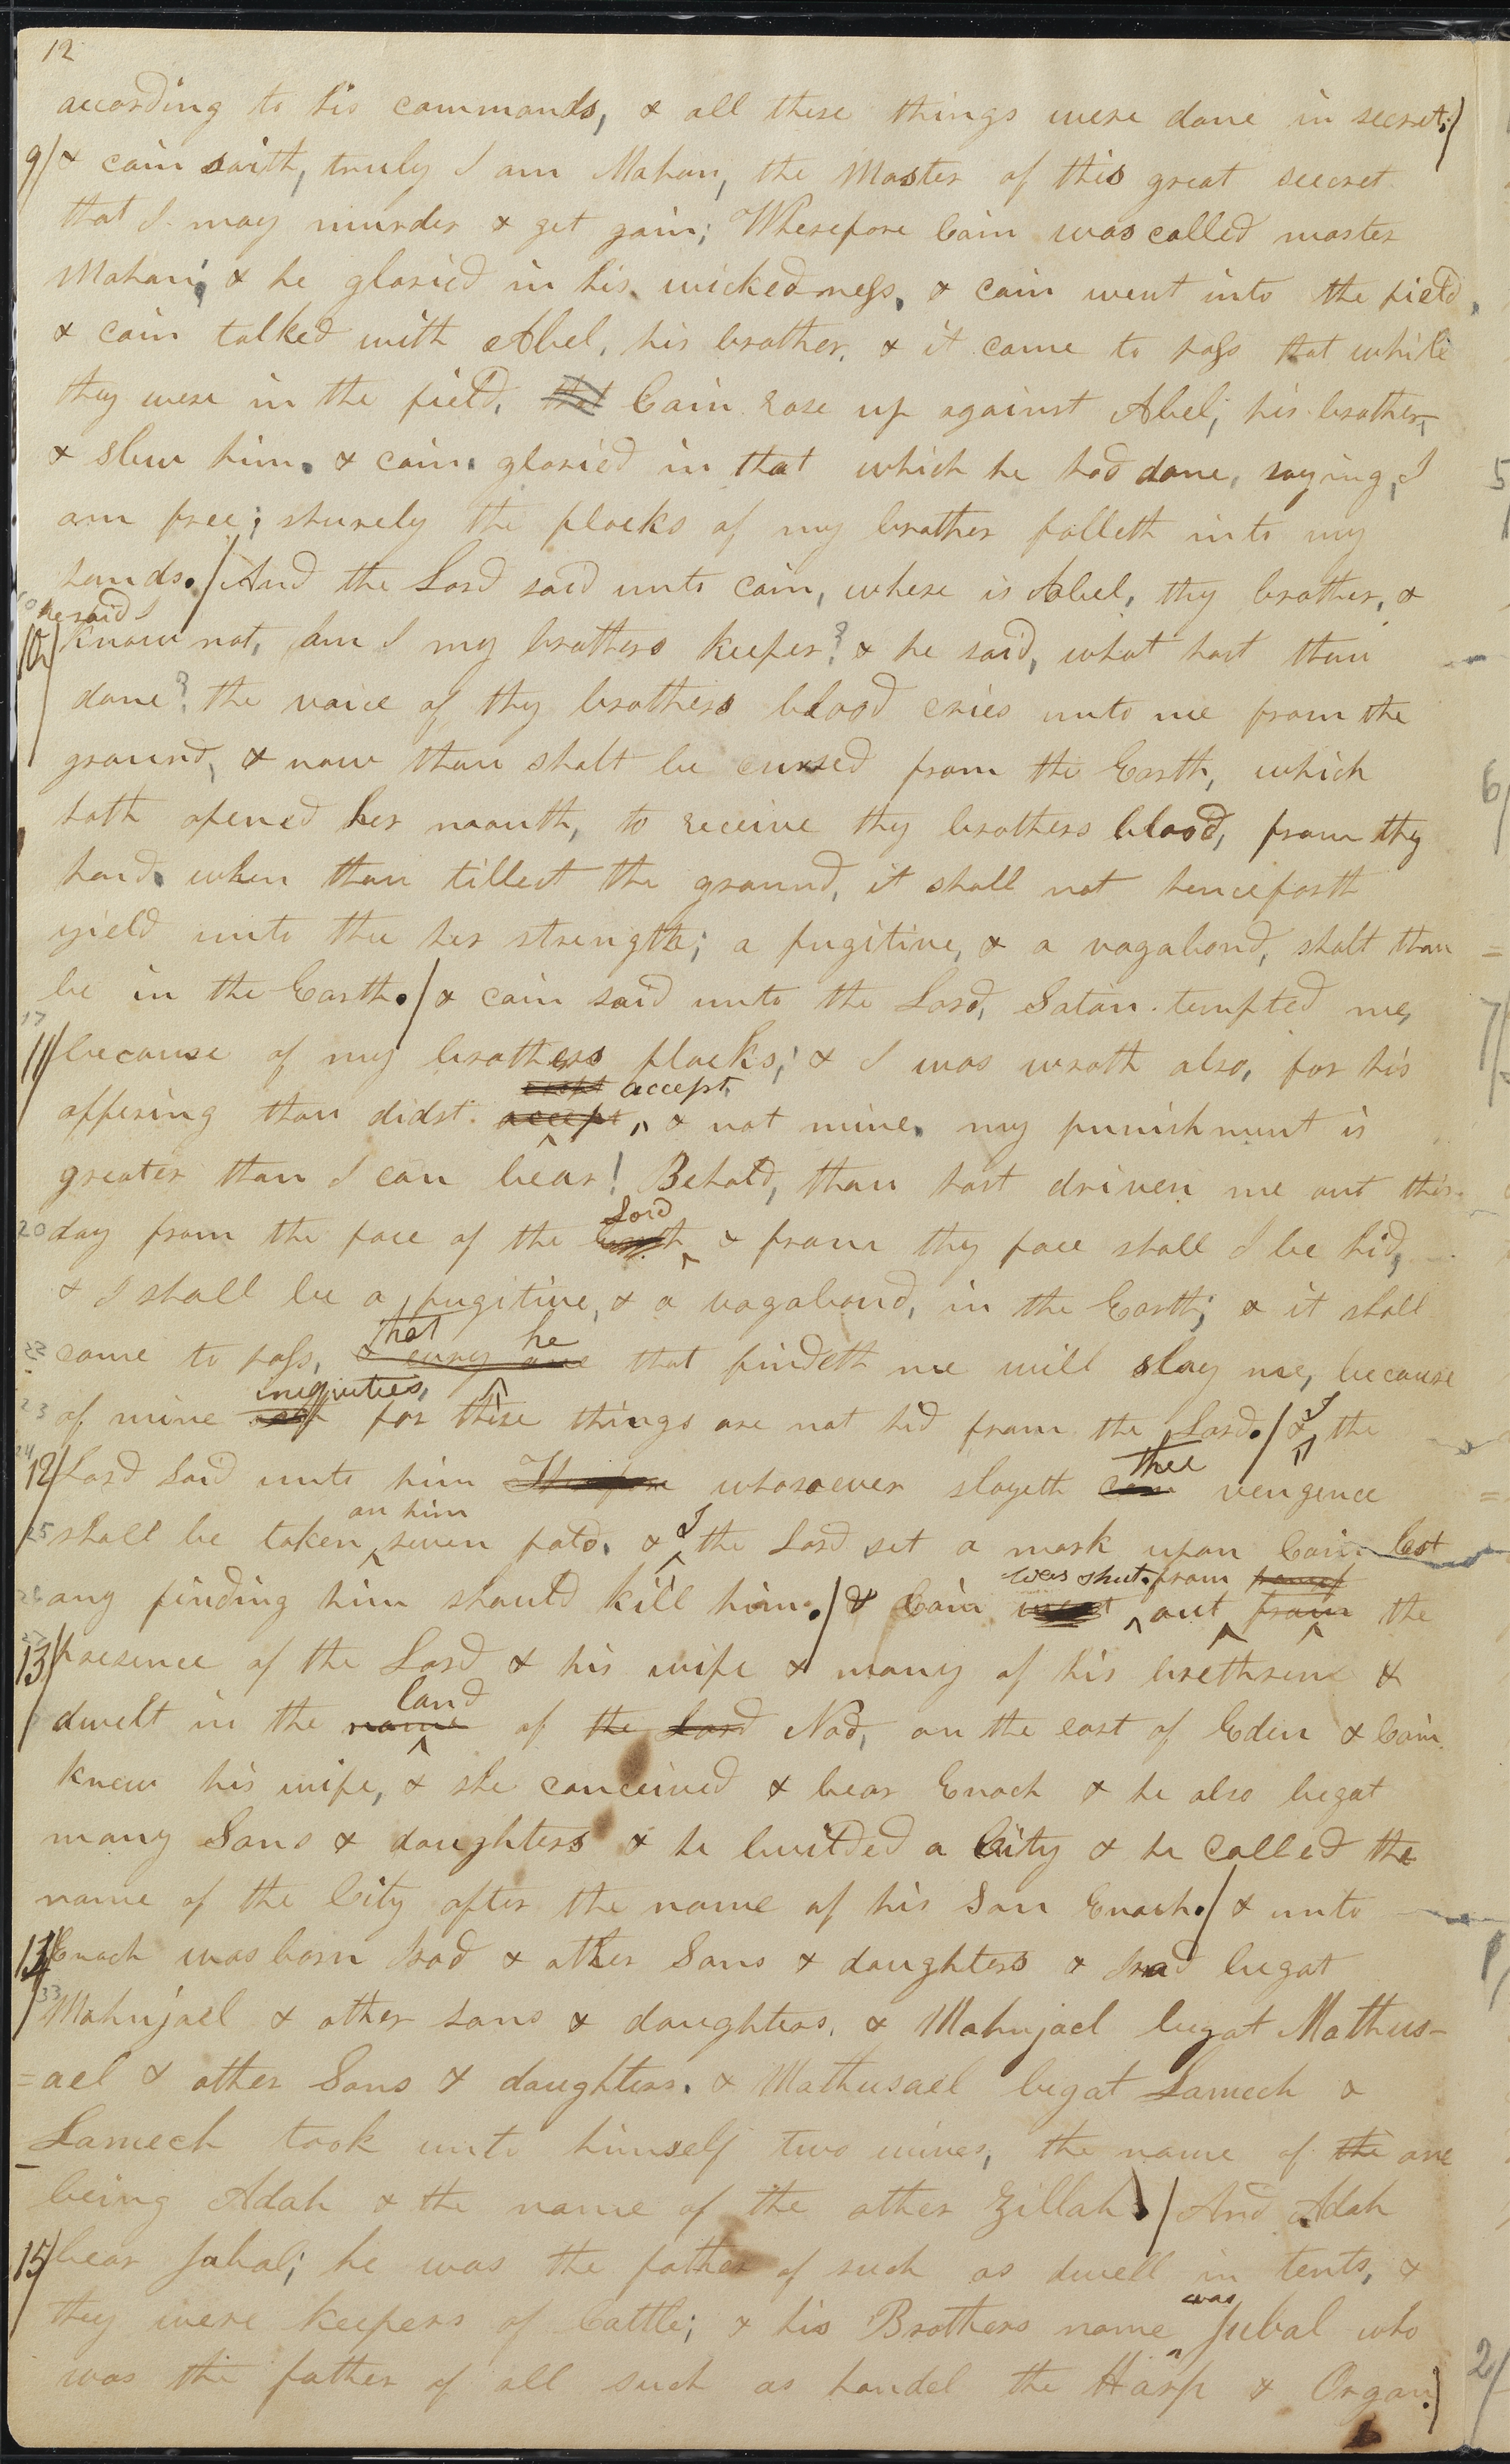 12
according to his commands, & all these things were done in secret;/
9/ & cain saith, truly I am Mahan, the Master of this great seecret
that I may murder & get gain; Wherefore Cain was called master
Mahan; & he gloried in his wickedness, & cain went into the field,
& cain talked with Abel, his brother, & it came to pass that while
they were in the field, that Cain rose up against Abel, his brother,
& slew him. & cain gloried in that which he had done, saying, I
am free; shurely the flocks of my brother falleth into my
hands./ And the Lord said unto cain, where is Abel, thy brother, &
he said I
10/ know not, am I my brothers keeper? & he said, what hast thou
done? the voice of thy brothers blood cries unto me from the
ground, & now thou shalt be cursed from the Earth, which
hath opened her mouth, to receive thy brothers blood, from thy
hand. when thou tillest the ground, it shall not henceforth
yield unto thee her strength; a fugitive, & a vagabond, shalt thou
be in the Earth./ & cain said unto the Lord, Satan tempted me,
17
11/ because of my brothers flocks; & I was wroth also, for his
accept
offering thou didst accept, & not mine. my punishment is
greater than I can bear! Behold, thou hast driven me out this
Lord
20 day from the face of the & from thy face shall I be hid,
& I shall be a fugitive, & a vagabond, in the Earth; & it shall
that he
22 come to pass, & every one that findeth me will slay me, because
iniquities,
23 of mine for these things are not hid from the Lord./ & I the
thee
24 12/ Lord said unto him Therefore whosoever slayeth cain vengence
on him I
25 shall be taken seven fold. & the Lord set a mark upon Cain lest
was shut from
26 any finding him should kill him./ & Cain went out from the
13/ presence of the Lord & his wife & many of his brethren &
land
dwelt in the name of the Lord Nod, on the east of Eden & Cain
knew his wife, & she conceived & bear Enoch & he also begat
many Sons & daughters & he builded a City & he called the
name of the City after the name of his Son Enoch./ & unto
14/ Enoch was born Irad & other Sons & daughters & Irad begat
33 Mahujael & other sons & daughters. & Mahujael begat Mathus-
=ael & other Sons & daughters. & Mathusael begat Lamech &
Lamech took unto himself two wives, the name of the one
being Adah & the name of the other Zillah./ And Adah
15/ bear Jabal; he was the father of such as dwell in tents, &
was
they were keepers of Cattle; & his Brothers name Jubal who
was the father of all such as handel the Harp & Organ./